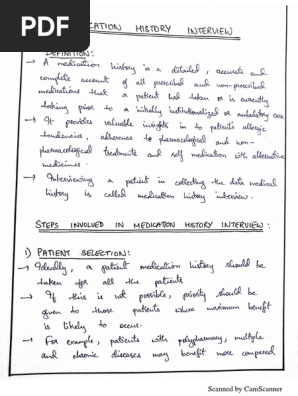 PDF
MEDICATION HISTORY INTERVIEW
DEFINITION:
→ A medication history is a detailed, accurate and
complete account of all prescribed and non-prescribed
medications that a patient had taken or is currently
taking prior to a initially institutionalized or ambulatory care
→ It provides valuable insights in to patients allergic
tendencies, adherence to pharmacological and non-
pharmacological treatments and self medication with alternative
medicines.
→ Interviewing a patient in collecting the data medical
history is called medication history interview.
STEPS INVOLVED IN MEDICATON HISTORY INTERVIEW:
1) PATIENT SELECTION:
→ Ideally, a patient medication history should be
taken for all the patients
→ If this is not possible, priority should be
given to those patients where maximum benefit
is likely to occur.
→ For example, patients with polypharmacy, multiple
and chronic diseases may benefit more compared
Scanned by CamScanner